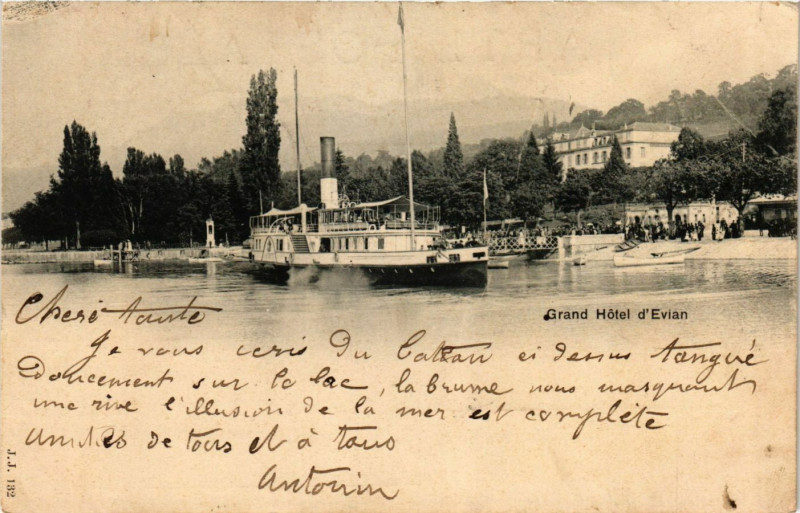 Grand Hôtel d'Evian
Cheré tante
Je vous ecris du bateau ci dessus tangué
doucement sur le lac, la brume nous masquant
une rive l'illusion de la mer est complète
Amitiés de tous et à tous
Antonin
J.J. 132